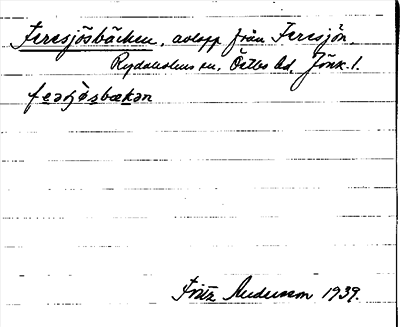 Feresjösbäcken, avlopp från Feresjön,
Rydaholms sn. Östbo hd. Jönk. l.
Fritz Andersson 1939.